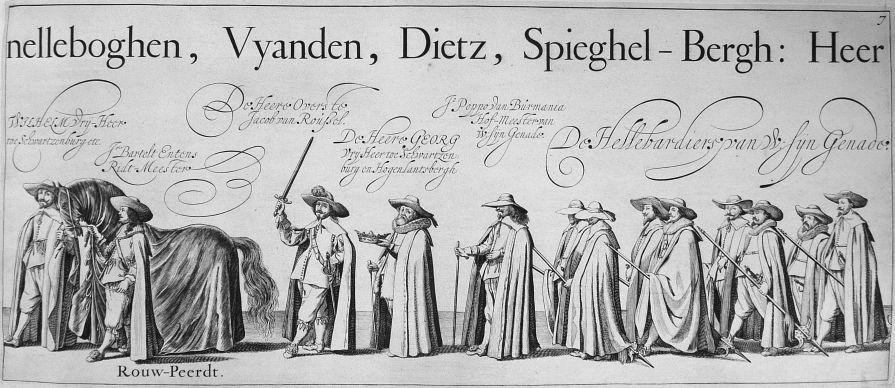 7
nelleboghen, Vyanden, Dietz, Spieghel-Bergh: Heer
WILHELM Vry-Heer
toe Schwartzenburg etc.
Jr. Bartelt Entens
Ridt-Meester
De Heere Overste
Jacob van Roussel.
De Heere GEORG
Vry Heer toe Schwartzen
burg en Hogenlantsbergh
Jr. Poppo van Burmania
Hof-Meester van
W. Syn Genade.
De Hellebardiers van W. Syn Genade.
Rouw-Peerdt.